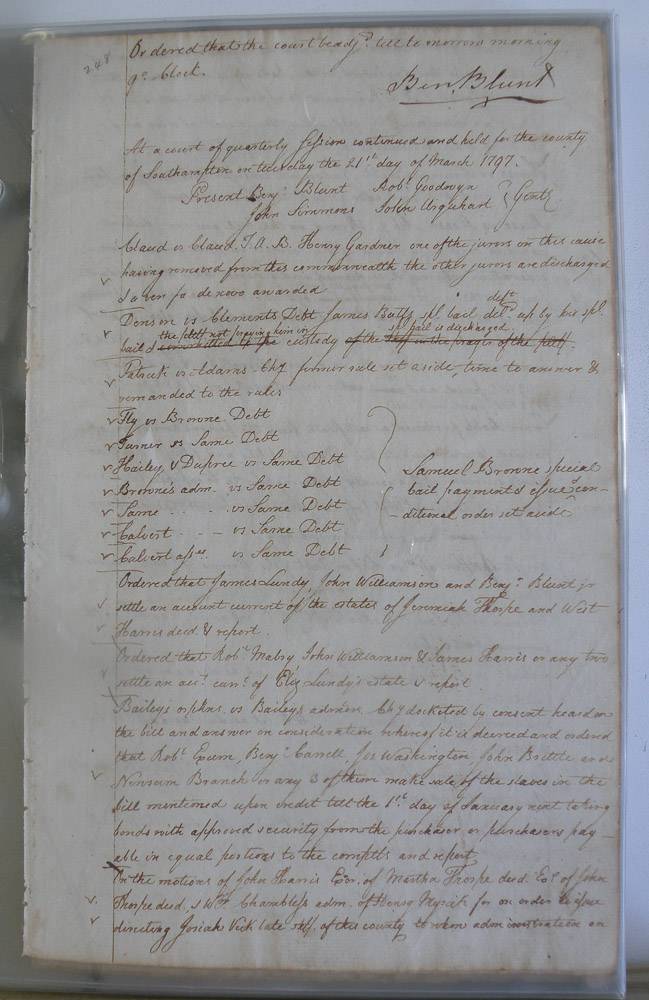 248
Ordered that the court be adjd. till to morrow morning
9 o Clock.
Ben. Blunt
At a court of quarterly Session continued and held for the county
of Southampton on tuesday the 21st day of March 1797.
Present Benj. Blunt Robt. Goodwyn
John Simmons John Urquhart } Gent
Claud vs Claud T. A. B. Henry Gardner one of the jurors in this cause
having removed from this commonwealth the other jurors are discharged
& a ven fa de novo awarded
deft
Denson vs Clements Debt James Batts spl. bail deld. up by his spl.
the pltff not praying him in spl bail is discharged
bail & committed to the custody of the Shff on the prayer of the pltff.
Patrick vs Adams Chy former rule set aside, time to answer &
remanded to the rules
Fly vs Browne Debt
Turner vs Same Debt
Hailey & Dupree vs Same Debt
Browne's adm. vs Same Debt
Same vs Same Debt
Calvert vs Same Debt
Calvert assee. vs Same Debt
Samuel Browne special
bail payment & issues con-
-ditional order set aside
Ordered that James Lundy, John Williamson and Benj. Blunt jr
settle an account current of the estates of Jeremiah Thorpe and West
Harris decd. & report.
Ordered that Robt. Mabry, John Williamson & James Harris or any two
settle an acct. currt. of Eliz Lundy's estate & report
Baileys orphns. vs Baileys admors Chy docketed by consent heard on
the bill and answer on consideration whereof it is decreed and ordered
that Robt. Exum, Benj. Carrell, Jos Washington John Brittle and
Newsum Branch or any 3 of them make sale of the slaves in the
bill mentioned upon credit till the 1st day of January next taking
bonds with approved security from the purchaser or purchasers pay-
able in equal portions to the complts and report
On the motions of John Harris Exr. of Martha Thorpe decd. Exx of John
Thorpe decd, & Wm Chambless adm. of Henry Myrick for an order to issue
directing Josiah Vick late Shff. of this county to whom administration on